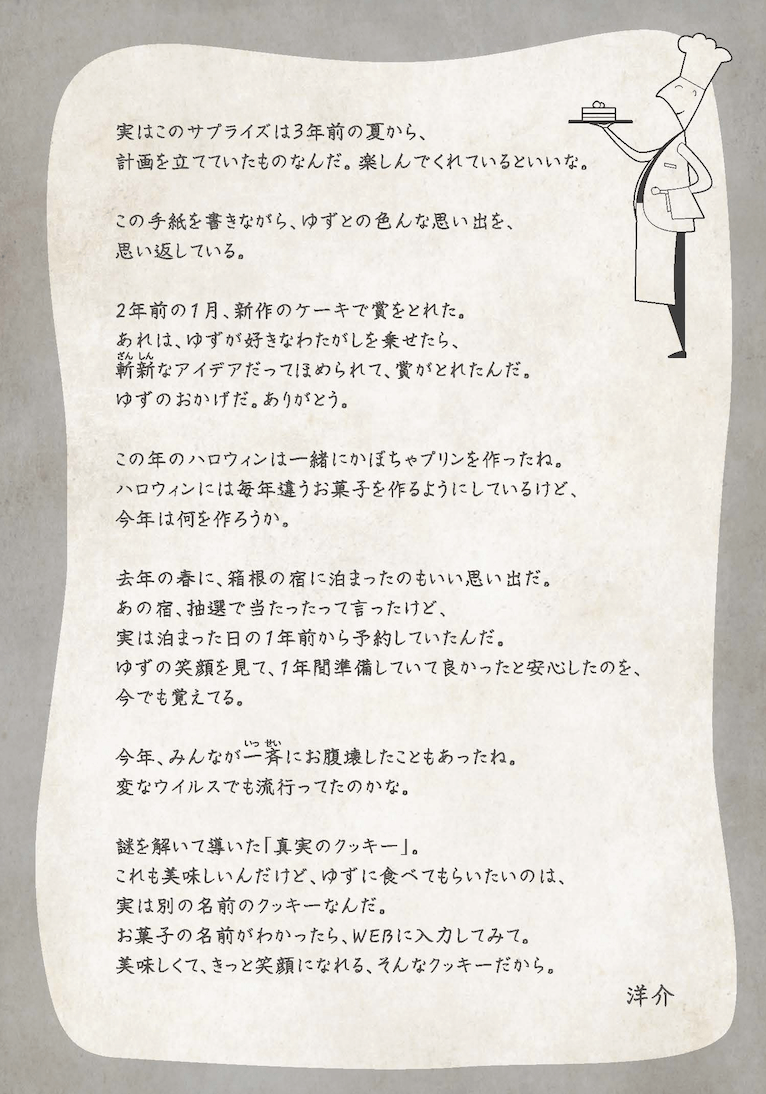 実はこのサプライズは3年前の夏から、
計画を立てていたものなんだ。楽しんでくれているといいな。
この手紙を書きながら、ゆずとの色んな思い出を、
思い返している。
2年前の1月、新作のケーキで賞をとれた。
あれは、ゆずが好きなわたがしを乗せたら、
ざん しん
斬新なアイデアだってほめられて、賞がとれたんだ。
ゆずのおかげだ。ありがとう。
この年のハロウィンは一緒にかぼちゃプリンを作ったね。
ハロウィンには毎年違うお菓子を作るようにしているけど、
今年は何を作ろうか。
去年の春に、箱根の宿に泊まったのもいい思い出だ。
あの宿、抽選で当たったって言ったけど、
実は泊まった日の1年前から予約していたんだ。
ゆずの笑顔を見て、1年間準備していて良かったと安心したのを、
今でも覚えてる。
いっ せい
今年、みんなが一斉にお腹壊したこともあったね。
変なウイルスでも流行ってたのかな。
謎を解いて導いた「真実のクッキー」。
これも美味しいんだけど、ゆずに食べてもらいたいのは、
実は別の名前のクッキーなんだ。
お菓子の名前がわかったら、WEBに入力してみて。
美味しくて、きっと笑顔になれる、そんなクッキーだから。
洋介